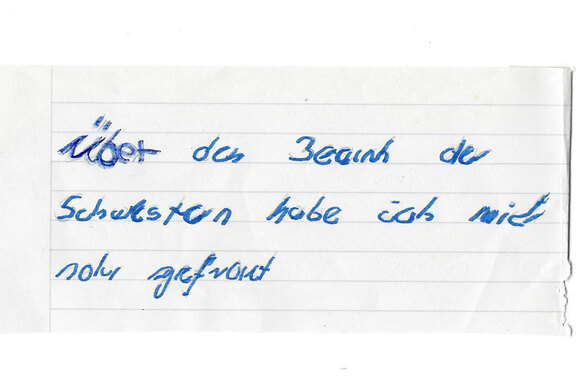 Über den Besuch der
Schwestern habe ich mich
sehr gefreut